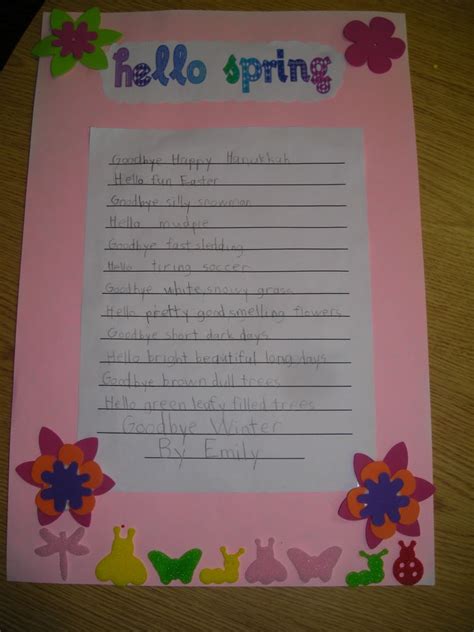 hello spring
Goodbye Happy Hanukkah
Hello fun Easter
Goodbye silly snowman
Hello mudpie
Goodbye fast sledding
Hello tiring soccer
Goodbye white, snowy grass
Hello pretty good smelling flowers
Goodbye short dark days
Hello bright beautiful long days
Goodbye brown dull trees
Hello green leafy filled trees
Goodbye Winter
By Emily